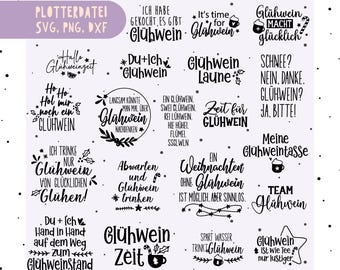 PLOTTERDATEI
SVG, PNG, DXF
ICH HABE
GEKOCHT, ES GIBT
GLÜHWEIN
It's time
for
Glühwein
Glühwein
MACHT
glücklich
Hallo
Glühweinzeit
Du + Ich
Glühwein
Glühwein
Laune
SCHNEE?
NEIN. DANKE.
GLÜHWEIN?
JA, BITTE!
Ho Ho Ho
Hol mir
noch ein
GLÜHWEIN
LANGSAM KÖNNTE
MAN MAL ÜBER
Glühwein
NACHDENKEN
EIN GLÜHWEIN.
SWEI GLÜHWEIN.
REI LÜHWEIN.
HIE HÜHEI.
FLÜMEL.
Zeit für
GLÜHWEIN
Meine
Glühweintasse
ICH TRINKE
NUR
Glühwein
VON GLÜCKLICHEN
Glühen!
Abwarten
und
Glühwein
trinken
EIN
Weihnachten
OHNE Glühwein
IST MÖGLICH, ABER SINNLOS.
TEAM
Glühwein
Du + Ich
Hand in Hand
auf dem Weg
zum
GLÜHWEINSTAND
GLÜHWEIN
Zeit
SPART WASSER
TRINKT Glühwein
Glühwein
IST WIE TEE
nur lustiger